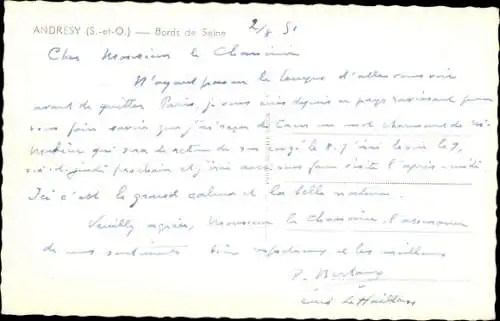 ANDRESY (S.-et-O.) — Bords de Seine
2/8 51
Cher Monsieur le Chanoine
N'ayant pas eu le temps d'aller vous voir
avant de quitter Paris, je vous écris depuis ce pays ravissant pour
vous faire savoir que j'ai reçu de un mot
qui sera de retour de son congé le 8. J'irai le voir le 9,
jeudi prochain et j'irai vous faire visite l'après-midi
Ici c'est le grand calme et la belle nature.
Veuillez agréer, Monsieur le Chanoine, l'assurance
de mes sentiments bien respectueux et les meilleurs
curé